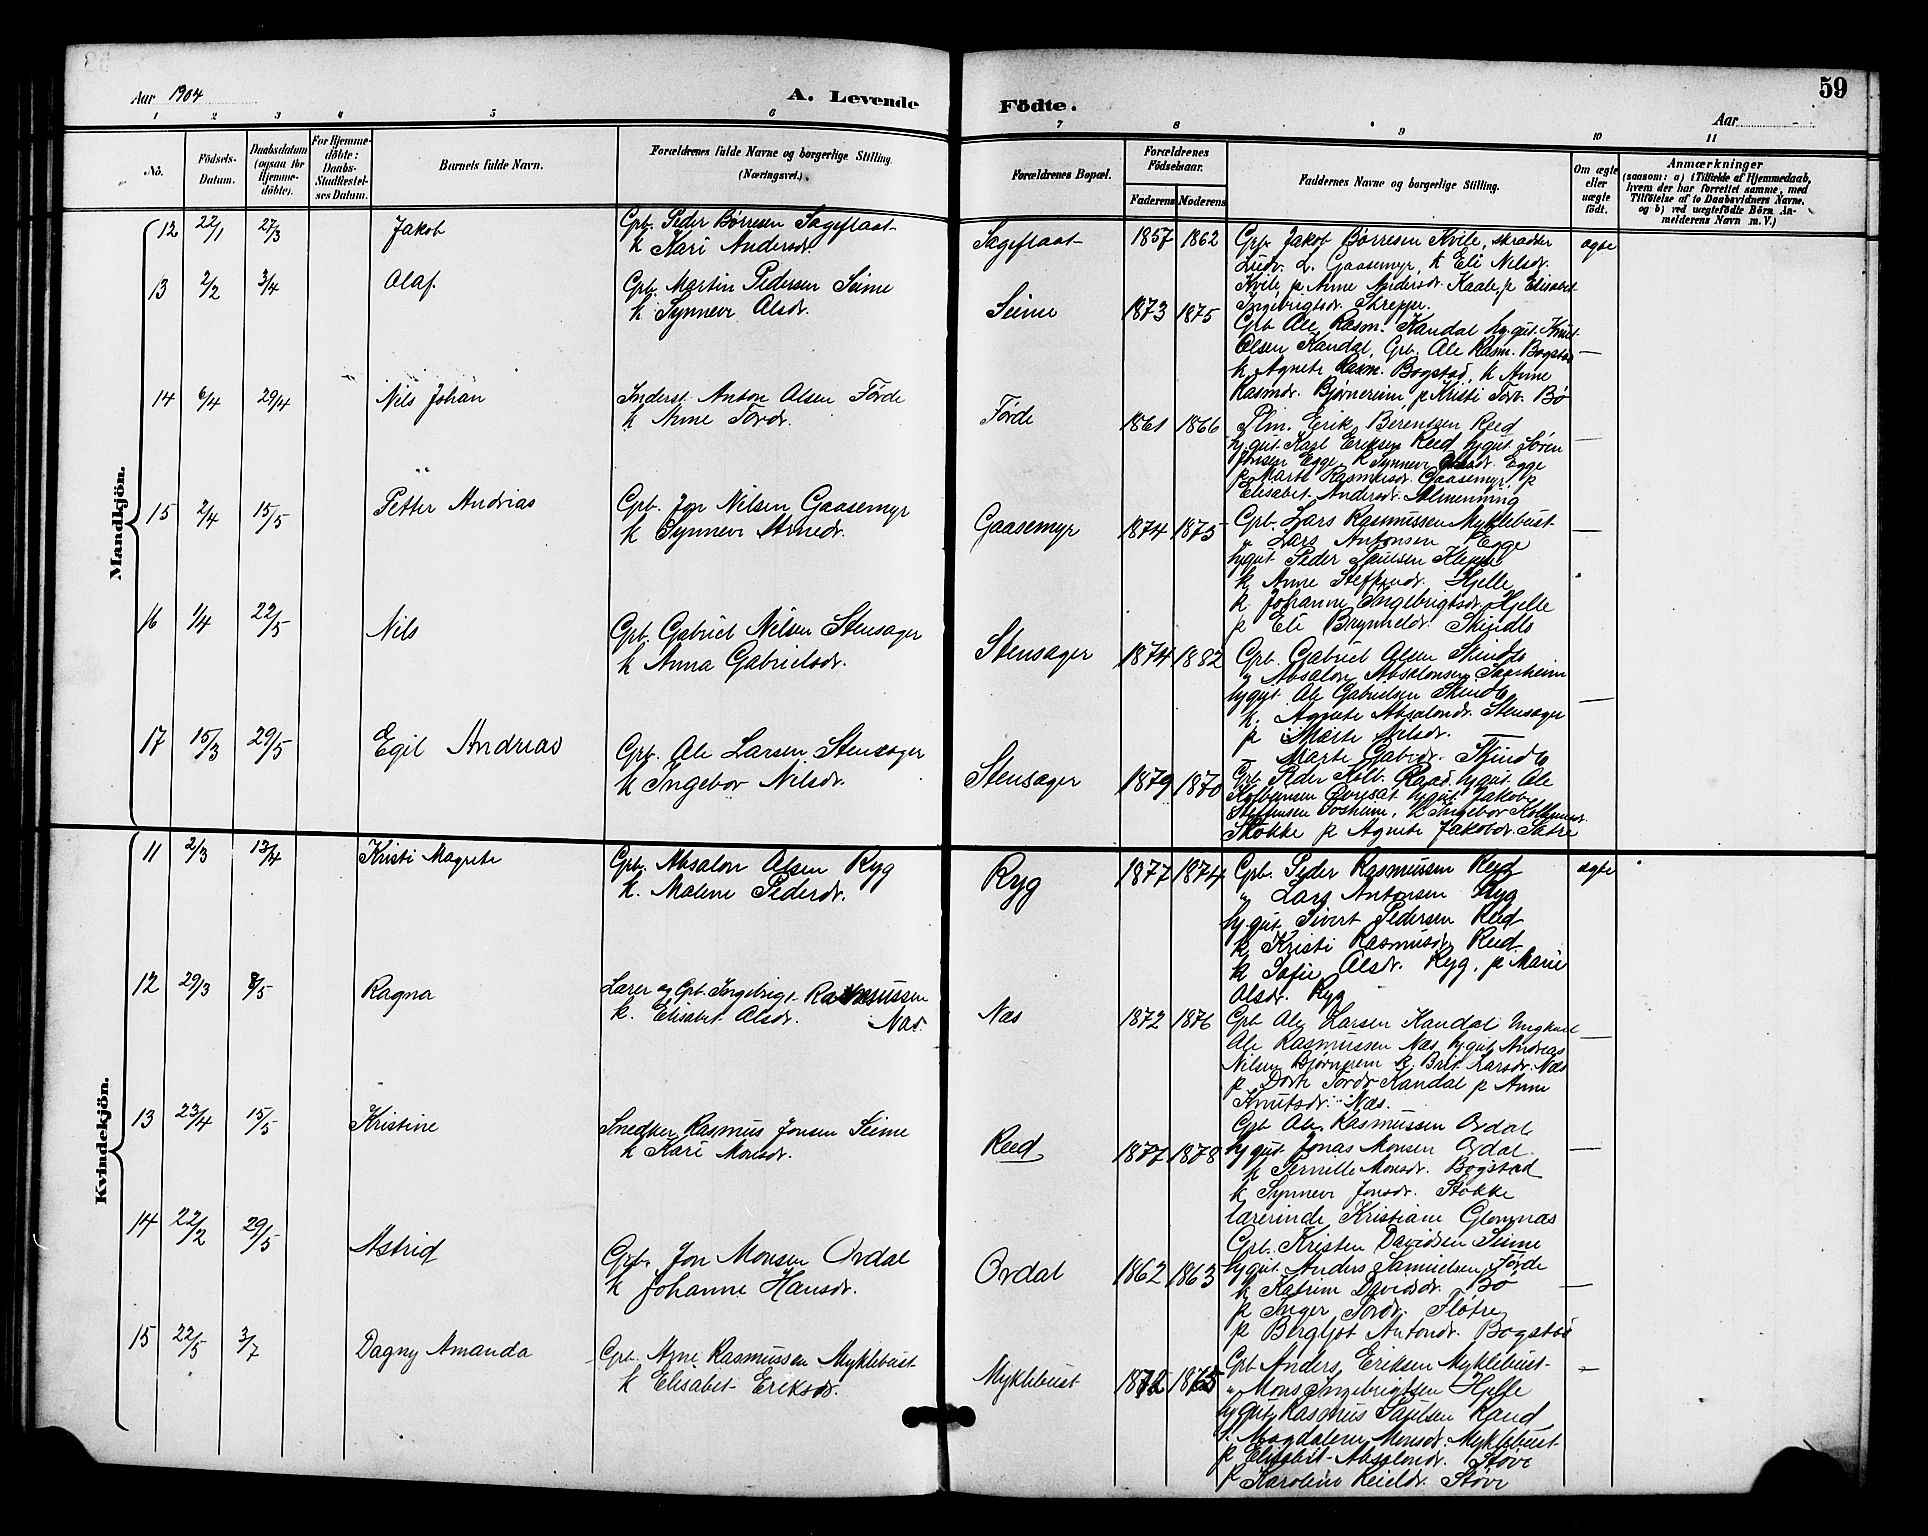 Aar 1904
A. Levende
Födte.
59
Aar
1 2 3 4 5 6 7 8 9 10 11
No.
Födsels-Datum.
Daabsdatum (ogsaa for Hjemme-döbte).
For Hjemme-döbte: Daabs-Stadfæstel-ses Datum.
Barnets fulde Navn.
Forældrenes fulde Navne og borgerlige Stilling. (Næringsvei.)
Forældrenes Bopæl.
Forældrenes Födselsaar.
Faderens Moderens
Faddernes Navne og borgerlige Stilling.
Om ægte eller uægte födt.
Anmærkninger
(saasom: a) i Tilfælde af Hjemmedaab, hvem der har forrettet samme, med Tilföielse af to Daabsvidners Navne, og b) ved uægtefödte Börn Anmelderens Navn m. V.)
Mandkjön.
12 22/1 27/3 Jakob
Grb. Peder Børresen Sageflaat
k Kari Andersdr.
Sageflaat 1857 1862
Grb. Jakob Børresen Kvile, skrædder
Ludv. L. Gaasemyr, k Eli Nilsdr.
Kvile, p Anne Andersdr. Kaale, p Elisabet
Ingebrigtsdr. Skrepper.
ægte
13 2/2 3/4 Olaf
Grb. Martin Pedersen Seime
k Synneve Olsdr.
Seime 1873 1875
Grb Ole Rasm. Kandal, ygut Knut
Olsen Kandal, Grb. Ole Rasm. Bogstad
k Agnete Rasm. Bogstad, k Anne
Rasmdr. Bjørnereim, p Kristi Tordr. Bø
—
14 6/4 29/4 Nils Johan
Inderst Anton Olsen Førde
k Anne Tordr.
Førde 1861 1866
Plm. Erik Berentsen Reed
ygut Karl Eriksen Reed, ygut Søren
Jensen Egge, k Synneve Egge
p Marte Rasmusdr. Gaasemyr, p
Elisabet Andersdr. Almenning
—
15 2/4 15/5 Petter Andrias
Grb. Jon Nilsen Gaasemyr
k Synneve Arnedr.
Gaasemyr 1874 1875
Grb. Lars Rasmussen Myklebust
" Lars Antonsen Egge
ygut Peder Paulsen Kleppe
k Anne Steffendr. Hjelle
k Johanne Ingebrigtsdr. Hjelle
p Eli Brynhildr. Skindlo
—
16 1/4 22/5 Nils
Grb. Gabriel Nilsen Stensager
k Anna Gabrielsdr.
Stensager 1874 1882
Grb. Gabriel Olsen Skindlo
" Absalon Absalonsen Saarheim
ygut Ole Gabrielsen Skindlo
k. Agnete Absalondr. Stensager
p Marte Nilsdr.
Marte Gabrdr. Skindlo
—
17 15/3 29/5 Egil Andreas
Grb. Ole Larsen Stensager
k Ingebor Nilsdr.
Stensager 1879 1870
Grb Peder Kolb. Raad, ygut Ole
Kolbensen ygut Jakob
Steffensen Josheim, k Ingebor
Støkke p Agnete Jakobdr. Sætre
Kvindekjön.
11 2/3 13/4 Kristi Magrete
Grb. Absalon Olsen Ryg
k. Malene Pedersdr.
Ryg 1877 1874
Grb. Peder Rasmussen Reed
" Lars Antonsen Ryg
ygut Sivert Pedersen Reed
k Kristi Rasmusdr. Reed
k Sofie Olsdr. Ryg, p Marie
Olsdr. Ryg
ægte
12 29/3 8/5 Ragna
Lærer og Grb. Ingebrigt Rasmussen
k. Elisabet Olsdr. Næs
Næs 1872 1876
Grb Ole Larsen Kandal Ungkarl
Ole Rasmussen Næs, ygut Andreas
Nilsen Bjørnereim k Brit Larsdr. Næs
p Dorte Tordr Kandal p Anne
Knutsdr. Næs.
—
13 23/4 15/5 Kristine
Snedker Rasmus Jonsen Seime
k Kari Monsdr.
Reed 1877 1878
Grb Ole Rasmussen Ordal
ygut Jonas Monsen Ordal
p Pernille Monsdr. Bogstad
k Synneve Jonsdr. Støkke
lærerinde Kristiane Glomnæs
—
14 22/2 29/5 Astrid
Grb. Jon Monsen Ordal
k Johanne Hansdr.
Ordal 1862 1863
Grb. Kristen Davidsen Seime
ygut Anders Samuelsen Førde
k Katrine Davidsdr. Bø
p Inger Tordr. Fløtre
p Bergljot Antondr. Bogstad
—
15 22/5 3/7 Dagny Amanda
Grb. Arne Rasmussen Myklebust
k Elisabet Eriksdr.
Myklebust 1872 1865
Grb Anders Eriksen Myklebust
" Mons Ingebrigtsen Hjelle
ygut Rasmus Paulsen Rand
k. Magdalene Monsdr. Myklebust
p Elisabet Absalondr. Støve
p Karoline Reieldr. Støve
—